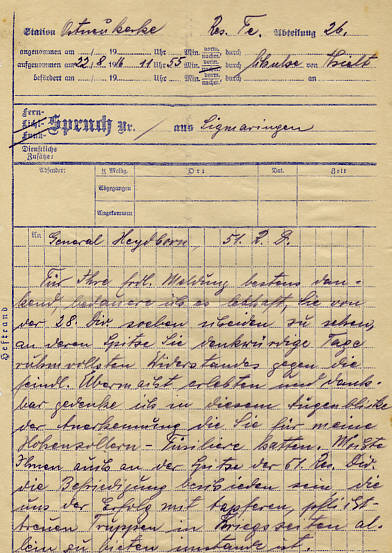 Station Ostnieukerke Res. Fe. Abteilung 26.
angenommen am / 19 Uhr Min. vorm. nachm. durch
aufgenommen am 22/8 1916 11 Uhr 55 Min. vorm. nachm. durch Schulze von Thielt
befördert am / 19 Uhr Min. vorm. nachm. durch an
Fern-
Licht-
Funk-
Spruch Nr. / aus Sigmaringen
Dienstliche
Zusätze:
Absender: Meldg. Ort Dat. Zeit
Abgegangen
Angekommen
An General Heydborn, 51. R. D.
Für Ihre frdl. Meldung bestens dan-
kend, bedauere ich es lebhaft, Sie von
der 28. Div. soeben scheiden zu sehen,
an deren Spitze Sie denkwürdige Tage
ruhmvollsten Widerstandes gegen die
feindl. Übermacht erlebten und dank-
bar gedenke ich in diesem Augenblicke
der Anerkennung die Sie für meine
Hohenzollern-Füsiliere hatten. Möchte
Ihnen auch an der Spitze der 51. Res. Div.
die Befriedigung beschieden sein die
uns der Erfolg mit tapferen, pflicht-
treuen Truppen in Kriegszeiten al-
lein zu bieten imstande ist
Heftrand